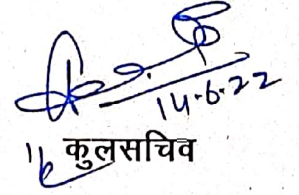 14.6.22
कुलसचिव